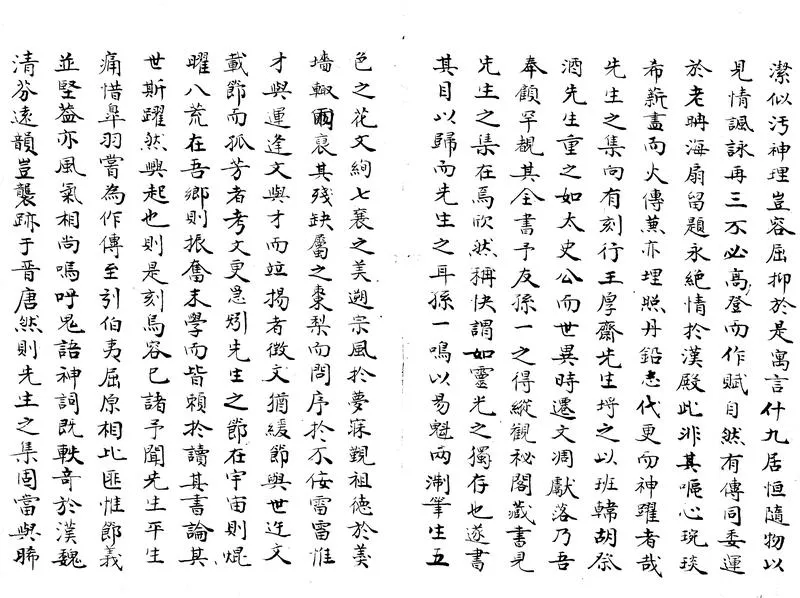 潔似汚神理豈容屈抑於是寓言什九居恒隨物以
見情諷詠再三不必高登而作賦自然有傳同委運
於老聃海扇留題永絕情於漢殿此非其嘔心琬琰
希薪盡而火傳蕙亦埋照丹鉛志代更而神躍者哉
先生之集向有刻行王厚齋先生埒之以班韓胡祭
酒先生重之如太史公而世異時遷文凋獻落乃吾
奉顧罕覩其全書予友孫一之得縱觀秘閣藏書見
先生之集在焉欣然稱快謂如靈光之獨存也遂書
其目以歸而先生之耳孫一鳴以易魁兩淛筆生五
色之花文絢七襄之美遡宗風於夢寐覲祖德於羹
墻輙爾裒其殘缺屬之棗梨而問序於不佞雷雷惟
才與運逢文與才而竝揭者徵文猶緩節與世迕文
載節而孤芳者考文更急矧先生之節在宇宙則焜
曜八荒在吾鄉則振奮末學而皆賴於讀其書論其
世斯躍然興起也則是刻烏容已諸予聞先生平生
痛惜臯羽嘗為作傳至引伯夷屈原相比匪惟節義
並堅葢亦風氣相尚嗚呼鬼語神詞既軼奇於漢魏
清芬遠韻豈襲跡于晋唐然則先生之集固當與晞